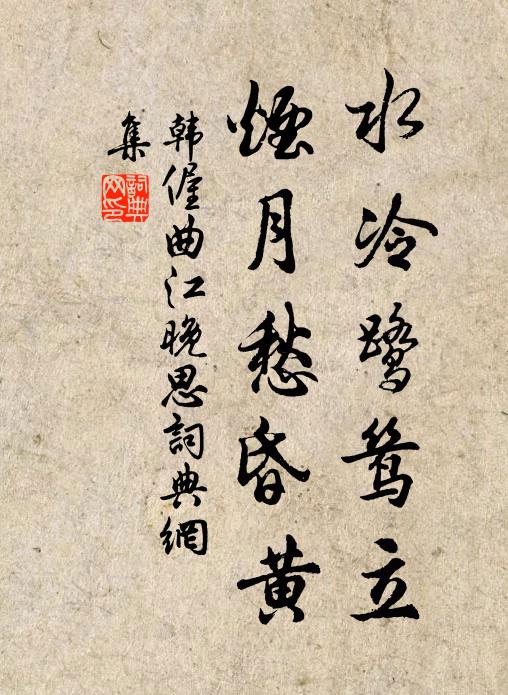 水冷鷺鸶立
煙月愁昏黄
韓偓曲江晚思詞典網
集
詞典
网印